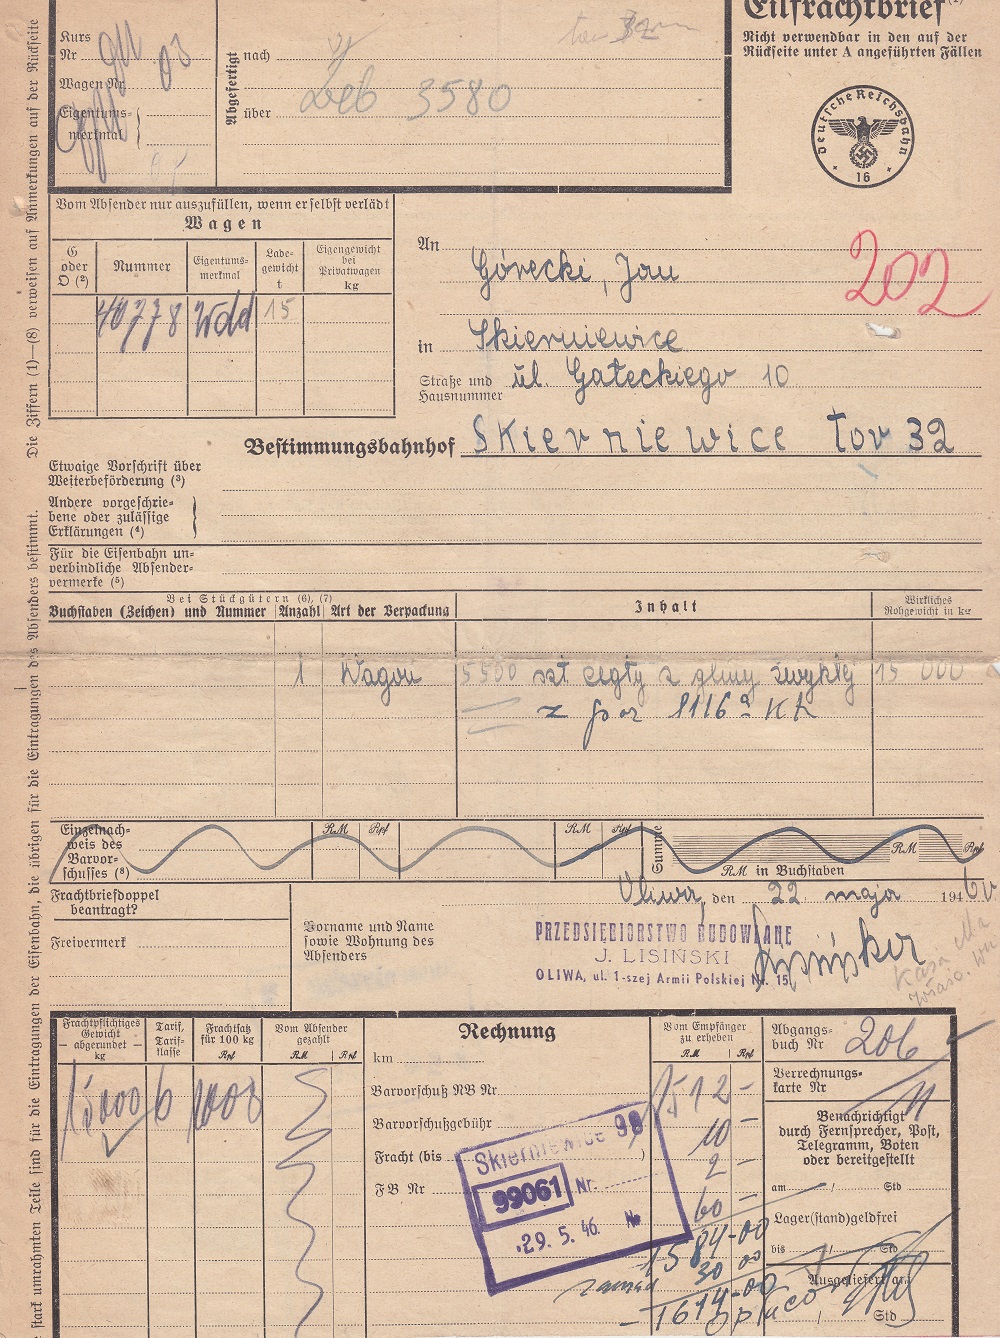 Eilfrachtbrief (1)
Nicht verwendbar in den auf der
Rückseite unter A angeführten Fällen
Deutsche Reichsbahn
16
Kurs
Nr
Wagen Nr
03
Eigentums-
merkmal
Abgefertigt
nach
über
3580
Die Ziffern (1)—(8) verweisen auf Anmerkungen auf der Rückseite
stark umrahmten Teile sind für die Eintragungen der Eisenbahn, die übrigen für die Eintragungen des Absenders bestimmt.
Vom Absender nur auszufüllen, wenn er selbst verlädt
Wagen
G
oder
O (2)
Nummer
Eigentums-
merkmal
Lade-
gewicht
t
Eigengewicht
bei
Privatwagen
kg
40778
15
An
Górecki, Jan
202
in
Skierniewice
Straße und
Hausnummer
ul. Gałeckiego 10
Bestimmungsbahnhof Skierniewice tor 32
Etwaige Vorschrift über
Weiterbeförderung (3)
Andere vorgeschrie-
bene oder zulässige
Erklärungen (4)
Für die Eisenbahn un-
verbindliche Absender-
vermerke (5)
Bei Stückgütern (6), (7)
Buchstaben (Zeichen) und Nummer
Anzahl
Art der Verpackung
Inhalt
Wirkliches
Rohgewicht in kg
1 Wagon 5500 szt cegły z gliny zwykłej 15 000
z poz 1116a
Einzelnach-
weis des
Barvor-
schusses (8)
RM Rpf
RM Rpf
Summe
RM Rpf
RM in Buchstaben
Frachtbriefdoppel
beantragt?
Freivermerk
Oliwa, den 22 maja 1946
Vorname und Name
sowie Wohnung des
Absenders
PRZEDSIĘBIORSTWO BUDOWLANE
J. LISIŃSKI
OLIWA, ul. 1-szej Armii Polskiej Nr. 15
Frachtpflichtiges
Gewicht
— abgerundet —
kg
Tarif,
Tarif-
klasse
Frachtsatz
für 100 kg
Rpf
Vom Absender
gezahlt
RM Rpf
15000 6 1008
Rechnung
km
Barvorschuß NB Nr
Barvorschußgebühr
Fracht (bis )
FB Nr
Vom Empfänger
zu erheben
RM Rpf
1512 —
10 —
2 —
60 —
1584-00
30 00
1614-00
Skierniewice 98
99061 Nr.
29. 5. 46.
Abgangs-
buch Nr
206
Verrechnungs-
karte Nr
11
Benachrichtigt
durch Fernsprecher, Post,
Telegramm, Boten
oder bereitgestellt
am / Std
Lager(stand)geldfrei
bis / Std
Ausgeliefert am
/ Std